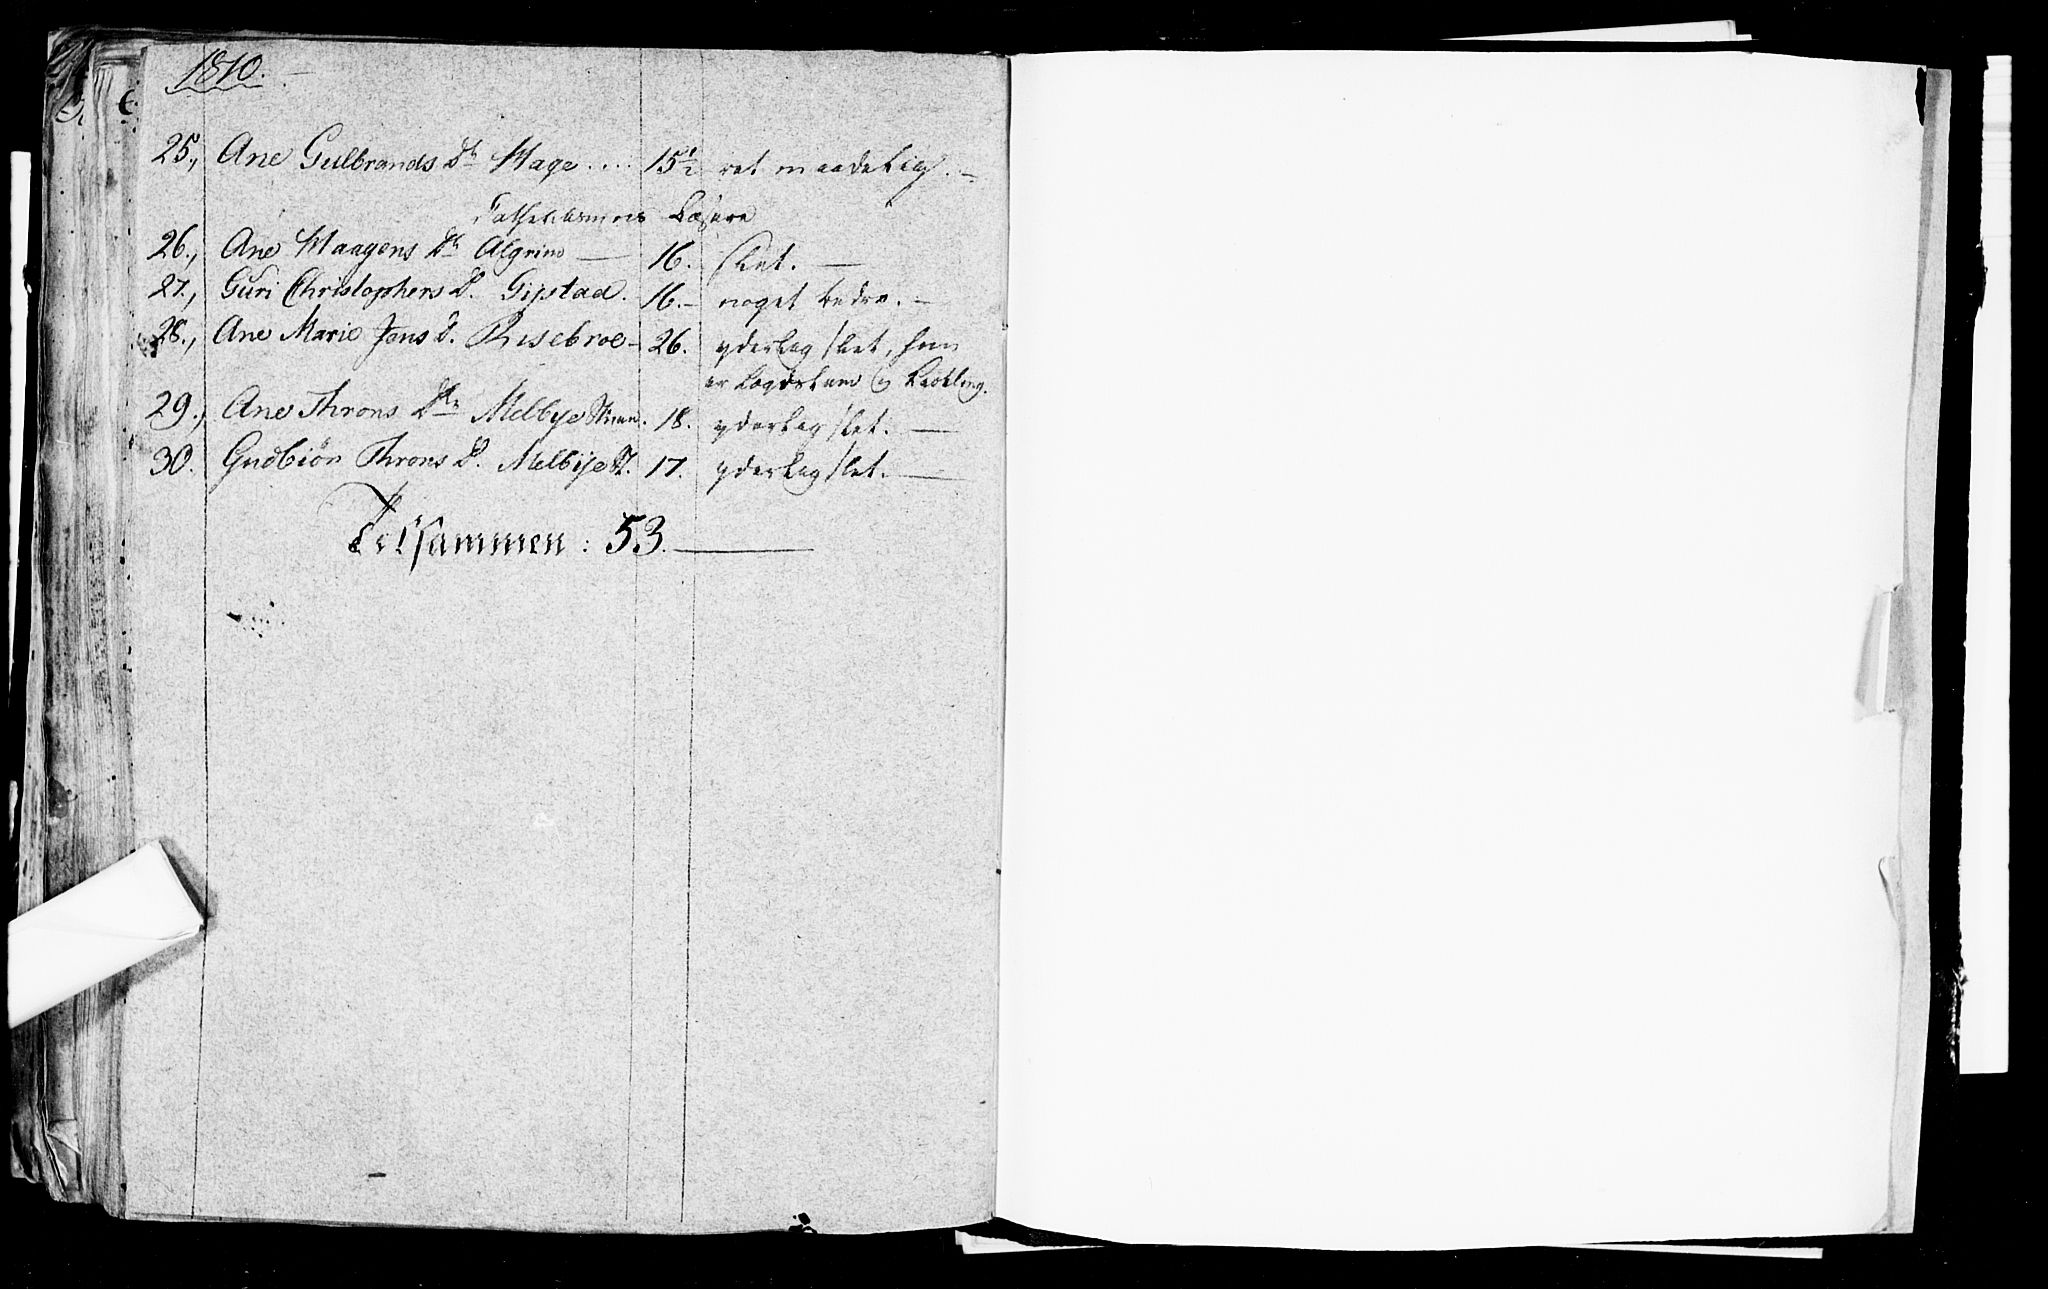 1810.
25., Ane Gulbrands Dtr Hage .... 15½ ret maadelig. –
Catechismus Læsere
26., Ane Haagens Dtr Algrim — 16. slet. —
27., Guri Christophers D. Gipstad. 16. – noget bedre. –
28., Ane Marie Jans D. Risebroe – 26. yderlig slet, hun
er Lægdslem og Krøbling.
29., Ane Throns Dtr Melbye 18. yderlig slet. —
30. Gudbiör Throns D. Melbije 17. yderlig slet. —
Tilsammen: 53. —